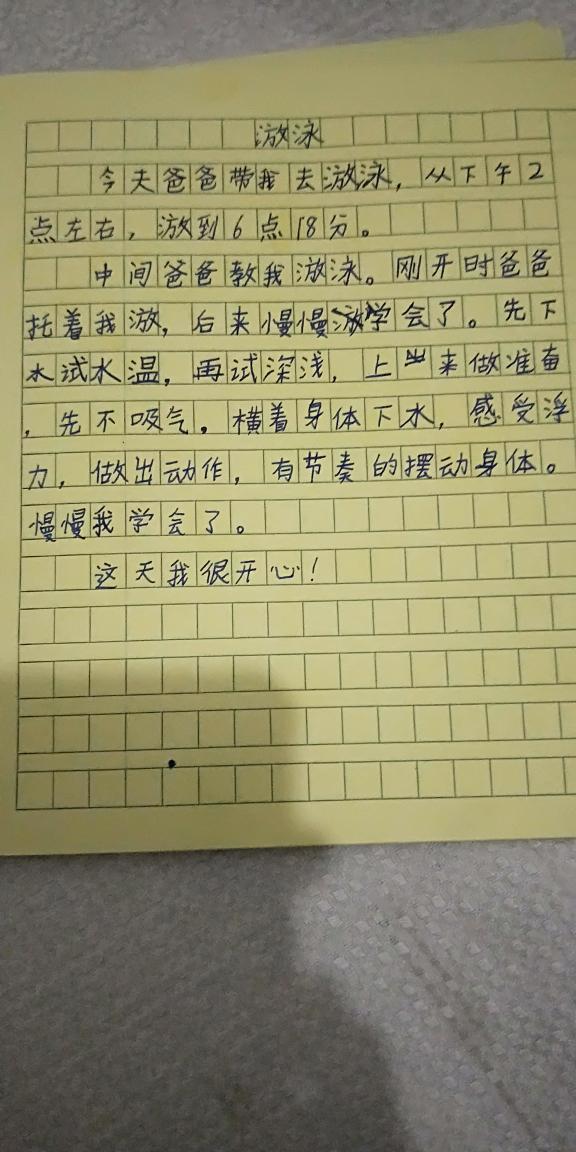 游泳
今天爸爸带我去游泳，从下午2
点左右，游到6点18分。
中间爸爸教我游泳。刚开时爸爸
托着我游，后来慢慢学会了。先下
水试水温，再试深浅，上出来做准备
，先不吸气。横着身体下水，感受浮
力，做出动作，有节奏的摆动身体。
慢慢我学会了。
这天我很开心！